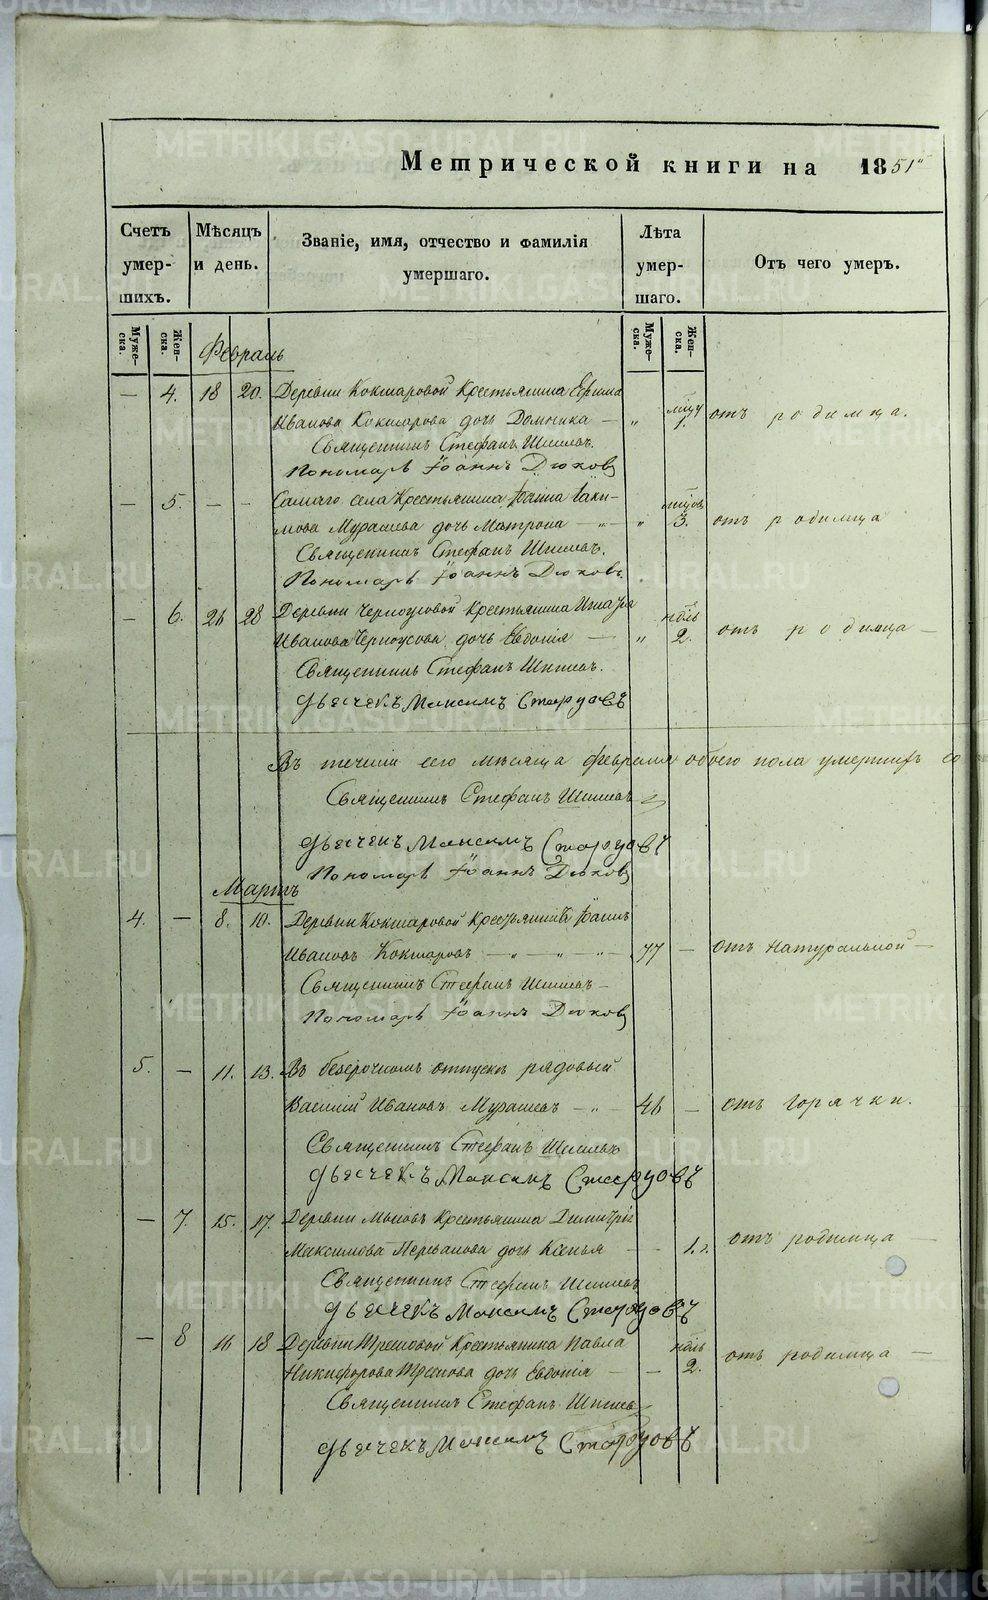 Метрической книги на 1851
Счетъ умер-шихъ.
Мѣсяцъ и день.
Званіе, имя, отчество и фамилія умершаго.
Лѣта умер-шаго.
Отъ чего умеръ.
Муже-ска.
Жен-ска.
Муже-ска.
Жен-ска.
Февраль
— 4. 18 20. Деревни Кокшаровой Крестьянина Ефима
Иванова Кокшарова дочь Домника — „ 1. отъ родимца.
Священникъ Стефанъ
Пономарь Іоаннъ Дюковъ
— 5. — — Самаго села Крестьянина Іоанна Іаки-
мова Мурашева дочь Матрона — „ — „ 3. отъ родимца
Священникъ Стефанъ
Пономарь Іоаннъ Дюковъ
— 6. 26 28 Деревни Черноусовой Крестьянина
Иванова Черноусова дочь Евдокія — „ 2. отъ родимца —
Священникъ Стефанъ
Дьячекъ Максимъ
Въ теченіи сего мѣсяца февраля обоего пола умершихъ
Священникъ Стефанъ
Дьячекъ Максимъ
Пономарь Іоаннъ Дюковъ
Мартъ
4. — 8. 10. Деревни Кокшаровой Крестьянинъ Іоаннъ
Ивановъ Кокшаровъ — „ — „ — „ — 77 — отъ натуральной —
Священникъ Стефанъ
Пономарь Іоаннъ Дюковъ
5. — 11. 13. Въ безсрочномъ отпускѣ рядовый
Василій Ивановъ Мурашевъ — „ — 46 — отъ горячки.
Священникъ Стефанъ
Дьячекъ Максимъ
— 7. 15. 17. Деревни Крестьянина Димитрія
Максимова дочь Ксенья — — 1. отъ родимца —
Священникъ Стефанъ
Дьячекъ Максимъ
— 8 16 18 Деревни Крестьянина Павла
Никифорова дочь Евдокія — — 2. отъ родимца —
Священникъ Стефанъ
Дьячекъ Максимъ
METRIKI.GASO-URAL.RU